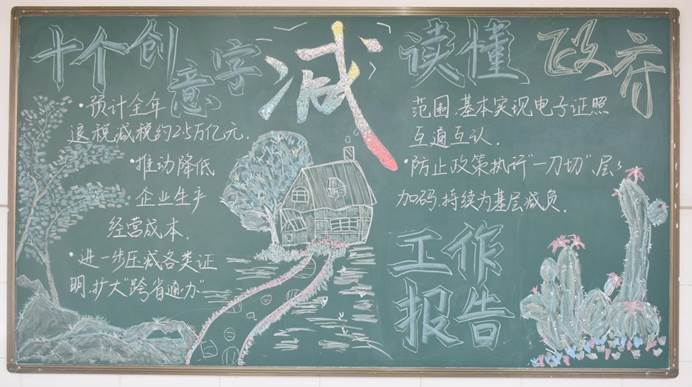 十个创意字
减
读懂政府
工作
报告
·预计全年
退税减税约2.5万亿元.
·推动降低
企业生产
经营成本.
·进一步压减各类证
明,扩大“跨省通办”
范围,基本实现电子证照
互通互认.
·防止政策执所“一刀切”、层层
加码,持续为基层减负.